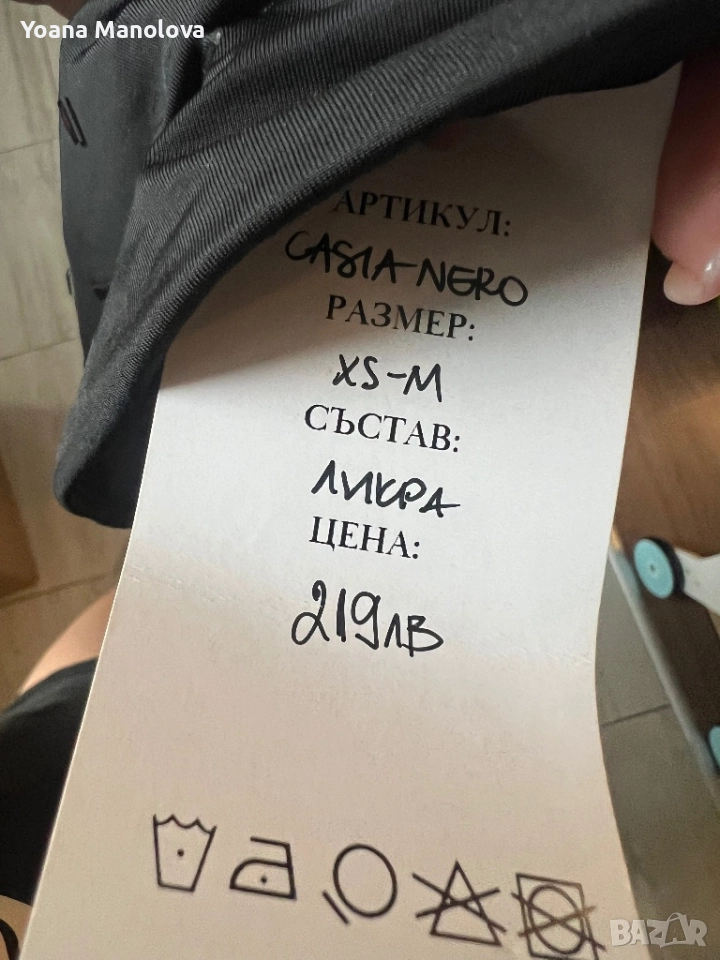 Yoana Manolova
АРТИКУЛ:
CASIA NERO
РАЗМЕР:
XS-M
СЪСТАВ:
ЛИКРА
ЦЕНА:
219лв
BAZAR